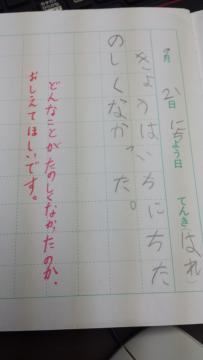 9月 2日 にちよう日 てんき(はれ)
きょうはいちにちた
のしくなかった。
どんなことがたのしくなかったのか、
おしえてほしいです。